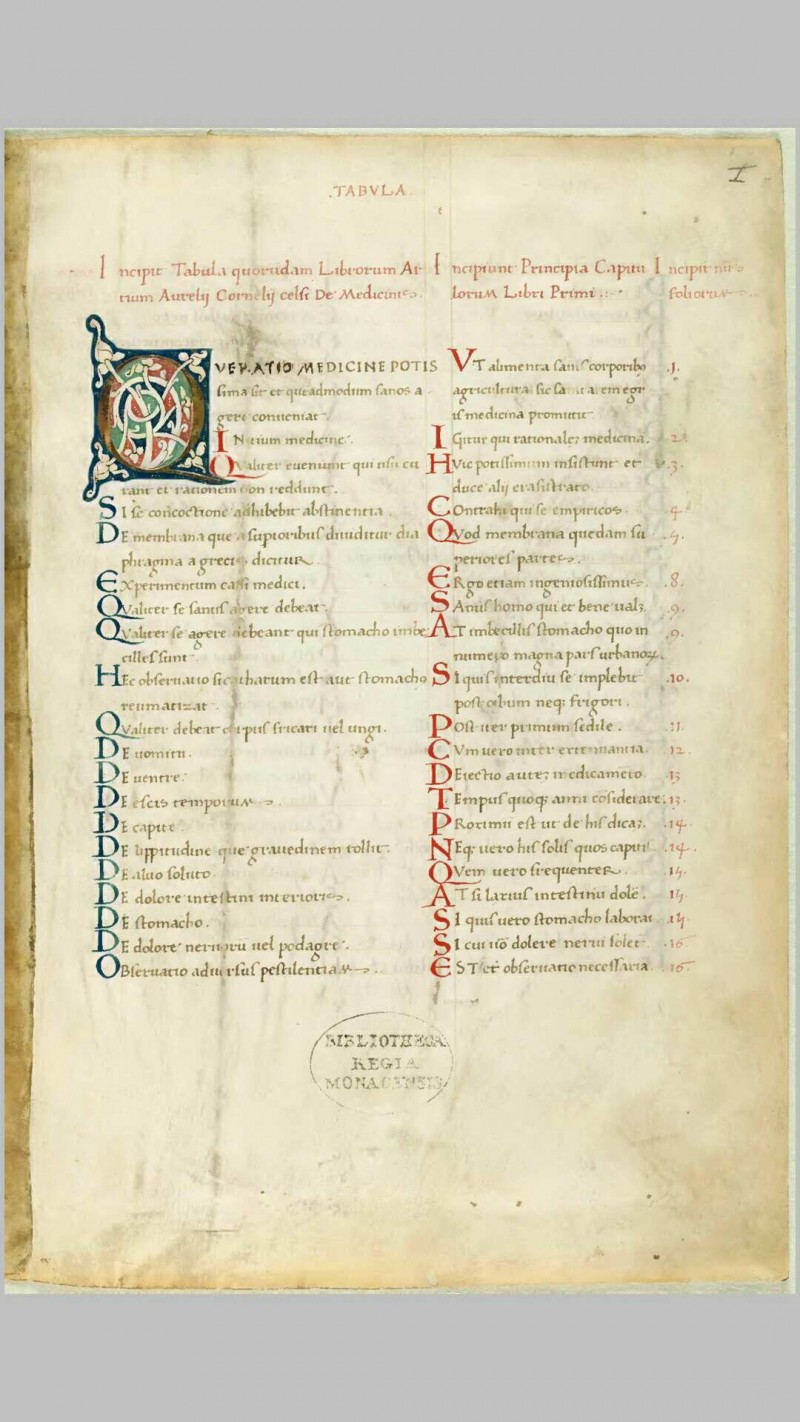 .TABVLA
I
Incipit Tabula quorundam Librorum Ar
tium Aurelij Cornelij celsi De Medicina
Incipiunt Principia Capitu
lorum Libri Primi
Incipit nu
foliorum
QVERATIO MEDICINE POTIS
sima sit et queadmodum sanos a
gere conueniat.
IN itium medicine.
Qualiter eueniunt qui nisi cu
rant et rationem non reddunt.
SI se concoctione adhibebit abstinentia.
DE membrana que a supioribus diuiditur dia
phragma a grecis dicitur
EXperimentum cassi medici.
QValiter se sanus agere debeat.
QValiter se agere debeant qui stomacho imbe
cilles sunt
HEc obseruatio sic tharum est aut stomacho
reumatizat
QValiter debeat corpus fricari uel ungi.
DE uomitu.
DE uentre.
DE escis temporum
DE capite
DE lippitudine que grauedinem tollit.
DE aluo soluto
DE dolore intestini interioris.
DE stomacho.
DE dolore neruoru uel podagre.
OBseruatio aduersus pestilentiam.
VT alimenta sanis corporibo .1.
agricultura sic sanita em egr
is medicina promittit
IGitur qui rationale; medicina. 2
HVic potissimum insistunt et .3.
duce alij erasistrato
COntrahi qui se empiricos 4
QVod membrana quedam su .5.
periores partes.
ERgo etiam ingeniosissimus. .8.
SAnus homo qui et bene ual;. .9.
AT imbecillis stomacho quo in .9.
numero magna pars urbanoꝝ.
SI quis interdiu se implebit .10.
post cibum neq; frigori.
POst iter primum sedile. .11.
CVm uero inter extenuantia. 12
DEiectio aute; medicameto 13
TEmpus quoq; anni cosiderare. .13.
PRorimu est ut de his dica;. .14.
NEq; uero his solis quos capitis .14.
QVem uero frequenter. 15.
AT si larius intestinu dole. .15.
SI quis uero stomacho laborat .15
SI cui uo dolere nerui solet .16
EST et obseruatio necessaria .16
BIBLIOTHECA
REGIA
MONACENSIS